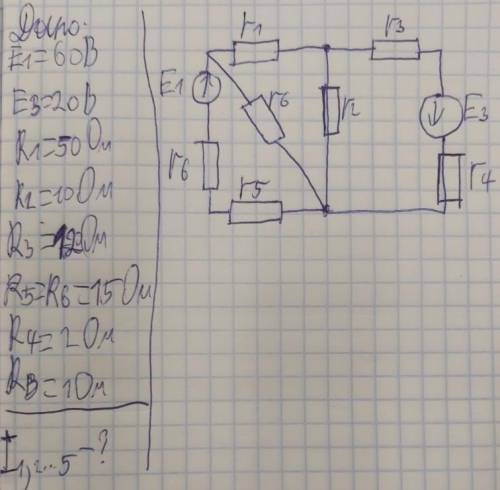 Дано:
E1=60В
E3=20В
R1=50 Ом
R2=10 Ом
R3=12 Ом
R5=R6=15 Ом
R4=2 Ом
RВ=1 Ом
I1,...5-?
r1
r3
E1
r6
r2
E3
r6
r5
r4